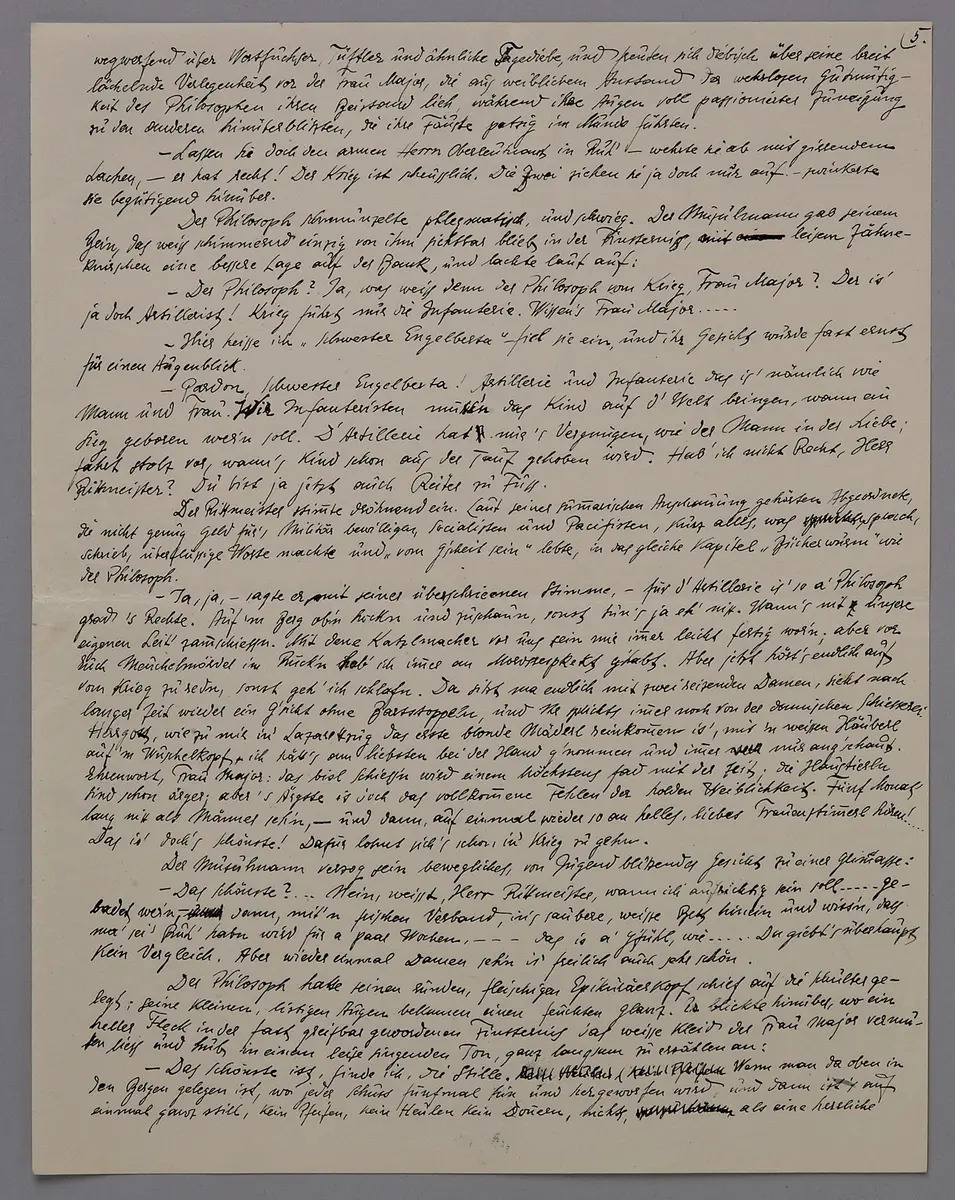 5.
wegwerfend über Wortfuchser, Tüftler und ähnliche Tagediebe und freuten sich diebisch über seine breit
lächelnde Verlegenheit vor der Frau Major, die aus weiblichem Anstand der wehrlosen Gutmütig-
keit des Philosophen ihren Beistand lieh, während ihre Augen voll passionierter Zuneigung
zu den anderen hinüberblitzten, die ihre Fäuste patzig im Munde führten.
– Lassen Sie doch den armen Herrn Oberleutnant in Ruh' – wehrte sie ab mit girrendem
Lachen, – er hat recht! Der Krieg ist scheusslich. Die Zwei ziehen sie ja doch nur auf. – zwinkerte
sie begütigend hinüber.
Der Philosoph schmunzelte phlegmatisch, und schwieg. Der Muselmann gab seinem
Bein, das weiss schimmernd einzig von ihm sichtbar blieb in der Finsternis, mit leisem Zähne-
knirschen eine bessere Lage auf der Bank, und lachte laut auf:
– Der Philosoph? Ja, was weiss denn der Philosoph vom Krieg, Frau Major? Der is'
ja doch Artillerist! Krieg führt nur die Infanterie. Wissen's Frau Major.....
– Hier heisse ich „Schwester Engelberta" – fiel sie ein, und ihr Gesicht wurde fast ernst
für einen Augenblick.
– Pardon, Schwester Engelberta! Artillerie und Infanterie das is' nämlich wie
Mann und Frau. Wir Infanteristen müss'n das Kind auf d' Welt bringen, wann ein
Sieg geboren wer'n soll. D' Artillerie hat nur 's Vergnügen, wie der Mann in der Liebe;
fahrt stolz vor, wann's Kind schon aus der Tauf gehoben wird. Hab' ich nicht Recht, Herr
Rittmeister? Du bist ja jetzt auch Reiter zu Fuss.
Der Rittmeister stimmte dröhnend ein. Laut seiner summarischen Anschauung gehörten Abgeordnete,
die nicht genug Geld für's Militär bewilligen, Socialisten und Pacifisten, kurz alles, was sprach,
schrieb, überflüssige Worte machte und „vom G'scheit sein" lebte, in das gleiche Kapitel „Bücherwürm" wie
der Philosoph.
– Ja, ja, – sagte er mit seiner überschrieenen Stimme, – für d' Artillerie is' so a' Philosoph
grad 's Rechte. Auf'm Berg ob'n hock'n und zuschaun, sonst tun's ja eh' nix. Wann's nit unsere
eigenen Leit' zamschiess'n. Mit dene Katzlmacher vor uns sein mir immer leicht fertig wor'n. aber vor
euch Meuchelmörder im Rück'n hab' ich immer an Mordsrespekt g'habt. Aber jetzt hört's endlich auf
vom Krieg zu red'n, sonst geh' ich schlaf'n. Da sitzt ma endlich mit zwei reizenden Damen, sieht nach
langer Zeit wieder ein G'sicht ohne Bartstoppeln, und Ihr sprichts immer noch von der dummischen Schiesserei.
Herrgott, wie zu mir in' Lazarettzug das erste blonde Mäderl reinkommen is', mit'n weissen Häuberl
auf'm Wuschelkopf, ich hätt's am liebsten bei der Hand g'nommen und immer nur ang'schaut.
Ehrenwort, Frau Major: das biol schiess'n wird einem höchstens fad mit der Zeit; die Haustierln
sind schon ärger; aber 's Ärgste is doch das vollkommene Fehlen der holden Weiblichkeit. Fünf Monat
lang nix als Männer seh'n, – und dann, auf einmal wieder so an helles, liebes Frauenstimmerl hören!....
Das is' doch 's schönste! Dafür lohnt sich's schon, in Krieg zu gehn.
Der Muselmann verzog sein bewegliches, von Jugend blitzendes Gesicht zu einer Grimasse:
– Das schönste?... Nein, weisst, Herr Rittmeister, wann ich aufrichtig sein soll..... ge-
badet wer'n, dann, mit'n frischen Verband, in's saubere, weisse Bett hinein und wiss'n, dass
ma' sei' Ruh' habn wird für a paar Wochen, – – – das is a' G'fühl, wie..... Da giebt's überhaupt
kein Vergleich. Aber wieder einmal Damen seh'n is' freilich auch sehr schön.
Der Philosoph hatte seinen runden, fleischigen Epikuräerkopf schief auf die Schulter ge-
legt; seine kleinen, listigen Augen bekamen einen feuchten Glanz. Er blickte hinüber, wo ein
heller Fleck in der fast greifbar gewordenen Finsternis das weisse Kleid der Frau Major vermu-
ten liess und hub in einem leise singenden Ton, ganz langsam zu erzählen an:
– Das schönste ist, finde ich, die Stille. Wenn man da oben in
den Bergen gelegen ist, wo jeder Schuss fünfmal hin und hergeworfen wird und dann ist's auf
einmal ganz still, kein Pfeifen, kein Heulen kein Donnern, nichts, als eine herrliche